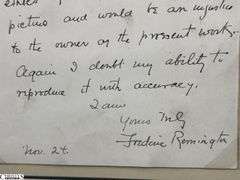 picture and would be an injustice
to the owner of the present work.
Again I doubt my ability to
reproduce it with accuracy.
I am
Yours truly
Frederic Remington
Nov. 24.